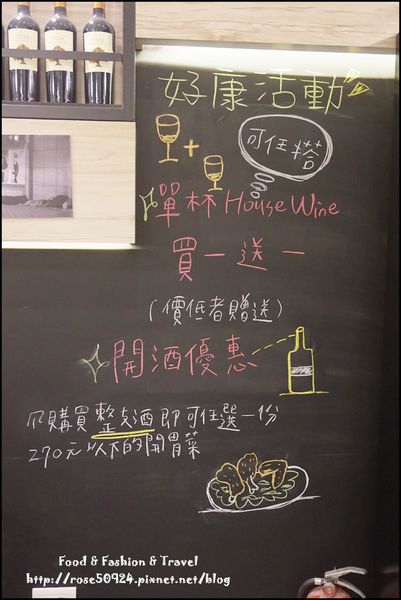 好康活動
可任搭
單杯 House Wine
買一送一
(價低者贈送)
開酒優惠
購買整支酒即可任選一份
270元以下的開胃菜
Food & Fashion & Travel
http://rose50924.pixnet.net/blog